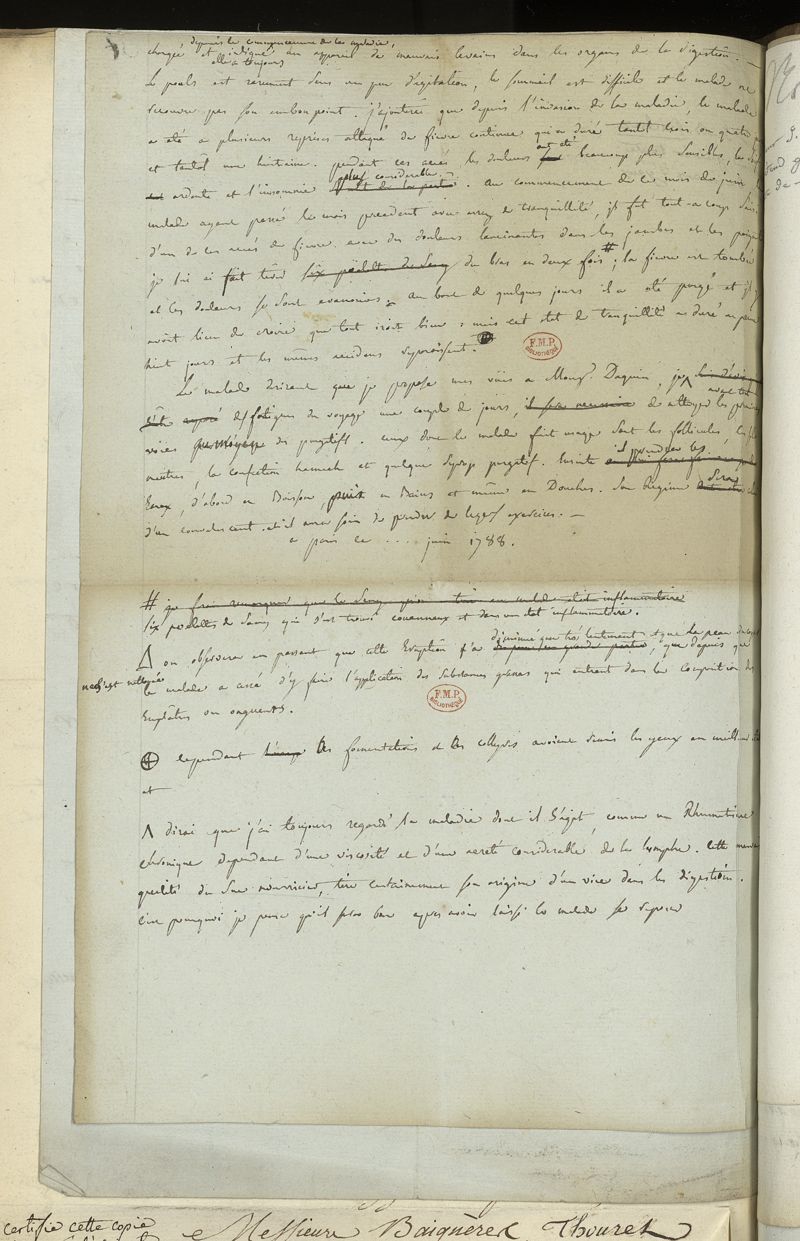 depuis le commencement de la maladie,
chargé et indiqué un appareil de mauvais levains dans les organs de la digestion. —
elle a toujours
Le pouls est rarement sans un peu d'agitation, le sommeil est difficile et le malade ne
recouvre pas son embonpoint. j'ajouterai que depuis l'invasion de la maladie, le malade
a été a plusieurs reprises attaqué de fievre continue qui a duré tantôt trois ou quatre
ont été
et tantôt une huitaine. pendant ces accés, les douleurs beaucoup plus sensibles, la
plus considerable.
ardente et l'insomnie au commencement de ce mois de juin, le
malade ayant passé le mois precedent avec assez de tranquillité, il fut tout-a-coup saisi
d'un de ces accés de fievre avec des douleurs lancinantes dans les jambes et les
je lui ai fait tirer six palettes de sang du bras en deux fois #; la fievre est tombée
et les douleurs se sont evanouies. au bout de quelques jours il a eté purgé et il y
avoit lieu de croire que tout iroit bien: mais cet etat de tranquillité a duré a peine
huit jours et les mêmes accidens reparoissent. ⊕
F.M.P. BIBLIOTHÈQUE
Le malade desirant que je propose mes vües a Monsr. Daquin, je Λ
des fatigues du voyage une couple de jours, il sera necessaire de nettoyer les premieres
avec des
voies des purgatifs. ceux dont le malade fait usage sont les follicules, les sels
neutres, la confection hamech et quelque syrop purgatif. Ensuite il prendra les
Eaux, d'abord en Boisson, puis en Bains et même en Douches. Son regime sera celui
d'un convalescent. et il aura soin de prendre de legers exercices. —
a paris ce ... juin 1788.
# je ferai remarquer que le sang qu'on tira au malade etat inflammatoire
six palettes de sang qui s'est trouvé couenneux et dans un etat inflammatoire.
diminue que trés lentement et que la peau
Δ on observera en passant que cette Eruption n'a, que depuis que
ne s'est nettoyée
le malade a cessé d'y faire l'application des substances grasses qui entrent dans la composition des
Emplâtres ou onguents.
F.M.P. BIBLIOTHÈQUE
⊕ cependant les fomentations et les collyres avoient remis les yeux en meilleur
et
Λ dirai que j'ai toujours regardé la maladie dont il s'agit, comme un Rhumatisme
chronique dependant d'une viscosité et d'une acreté considerable de la lymphe. Cette mauvaise
qualité du suc nourricier, tire certainement son origine d'un vice dans les digestions.
C'est pourquoi je pense qu'il sera bon aprés avoir laissé le malade se reposer
certifie cette copie
Messieurs Baignères, Thouret